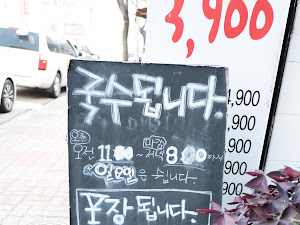 3,900
국수됩니다.
오픈 마감
오전 11:00 ~ 저녁 8:00까지
일요일은 쉽니다.
포장됩니다.
4,900
,900
,900
,900
,900